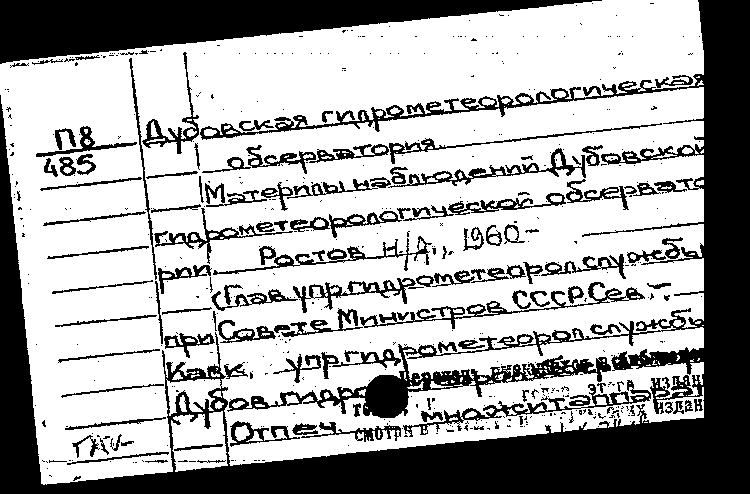 П8
485
Дубовская гидрометеорологическая
обсерватория.
Материлы наблюдений Дубовской
гидрометеорологической обсервато
рии. Ростов н/Д., 1960-
(Глав. упр. гидрометеорол. службы
при Совете Министров СССР. Сев.-
Кавк. упр. гидрометеорол. службы
Дубов. гидро
Отпеч. множит. аппара
смотри в